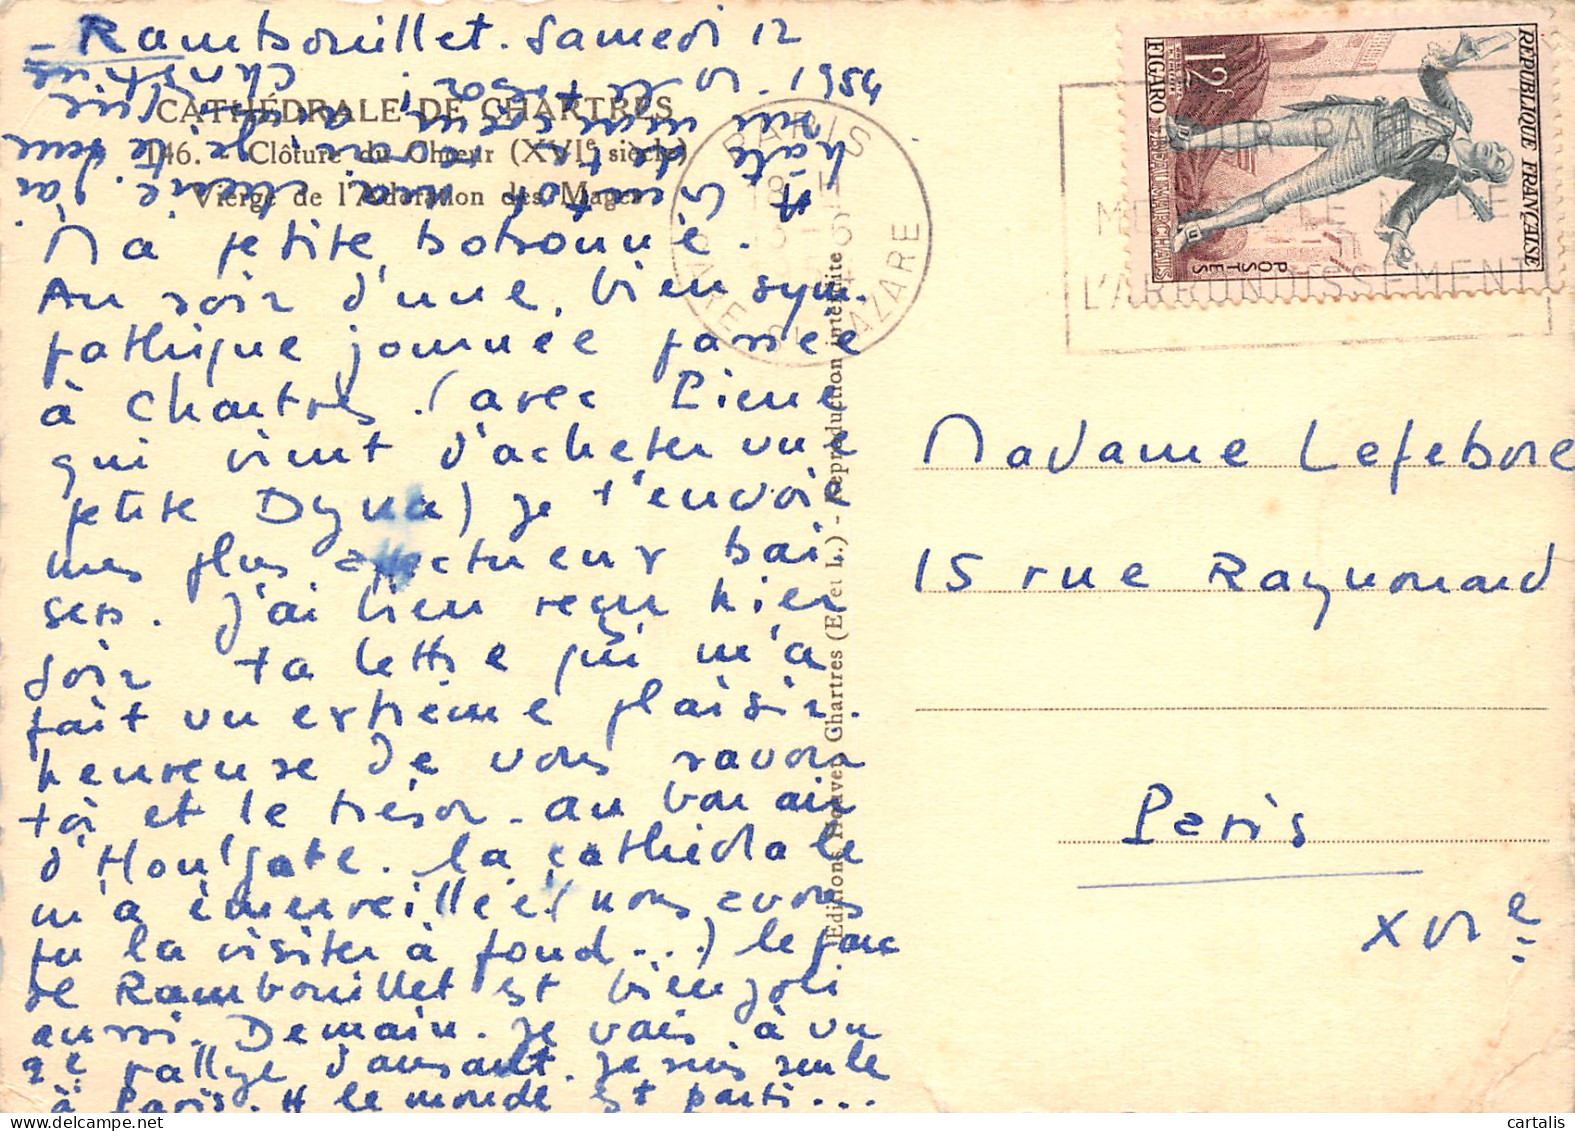 - Rambouillet. Samedi 12
VI. 1954
CATHÉDRALE DE CHARTRES
146. - Clôture du Chœur (XVIe siècle)
Vierge de l'Adoration des Mages
Ma petite botronne.
Au soir d'une bien sym-
pathique journée passée
à Chartres. (avec Pierre
qui vient d'acheter une
petite Dyna) je t'envoie
mes plus affectueux bai-
sers. J'ai bien reçu hier
soir ta lettre qui m'a
fait un extrême plaisir.
heureuse de vous savoir
toi et le trésor. au bon air
d'Houlgate. la cathédrale
m'a émerveillée (nous avons
pu la visiter à fond...) le parc
de Rambouillet est bien joli
aussi. Demain. je vais à un
2e rallye dansant. je suis seule
à Paris. # le monde est parti...
Editions Houvet, Chartres (E. et L.) - Reproduction interdite
PARIS
18 H
13-6
1954
GARE ST LAZARE
L'ARRONDISSEMENT
REPUBLIQUE FRANÇAISE
POSTES
12f
FIGARO
Madame Lefebvre
15 rue Raynouard
Paris
XVIe